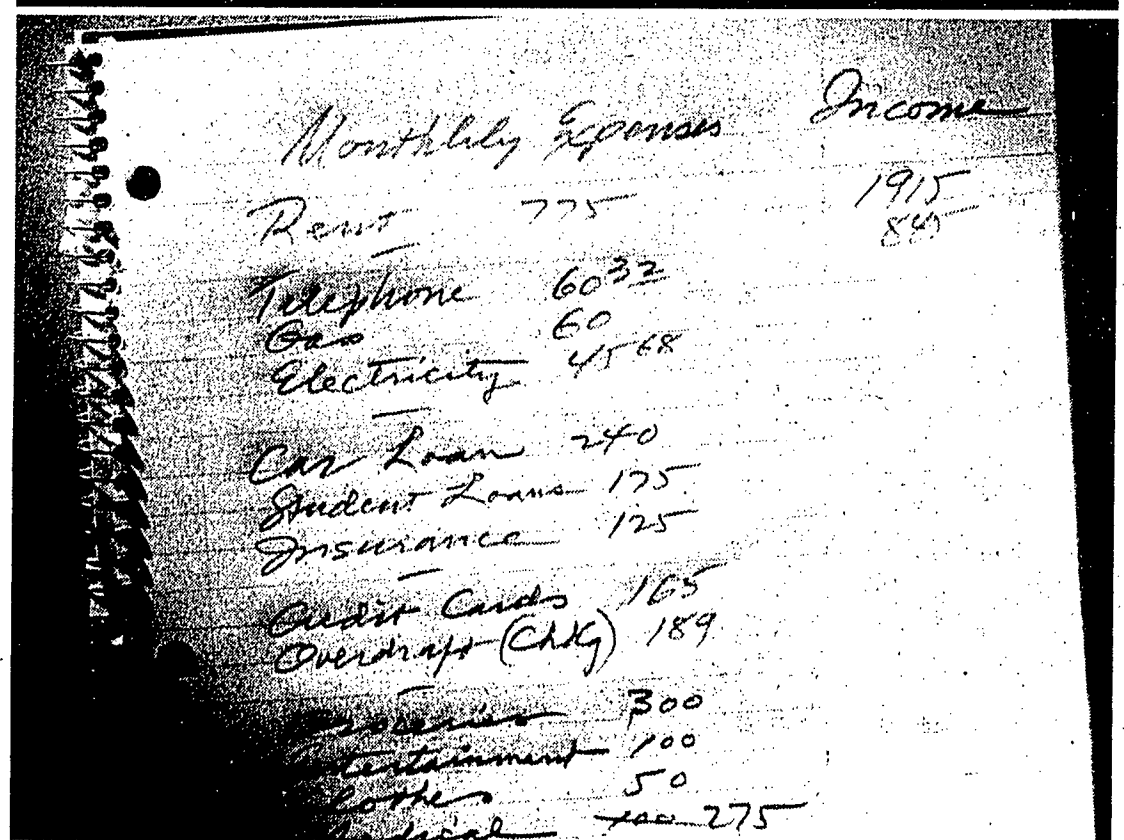 Monthlily Expenses Income
Rent 775 1915
845
Telephone 60 32
Gas 60
Electricity 45 68
Car Loan 240
Student Loans 175
Insurance 125
Credit Cards 165
Overdraft (ChKG) 189
Groceries 300
Entertainment 100
Clothes 50
Medical 100 275